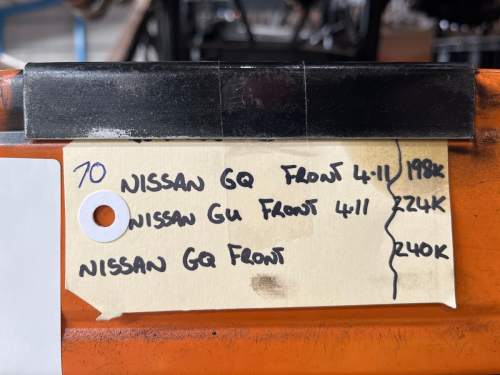 70 NISSAN GQ FRONT 4.11 198K
NISSAN GU FRONT 4.11 224K
NISSAN GQ FRONT 240K